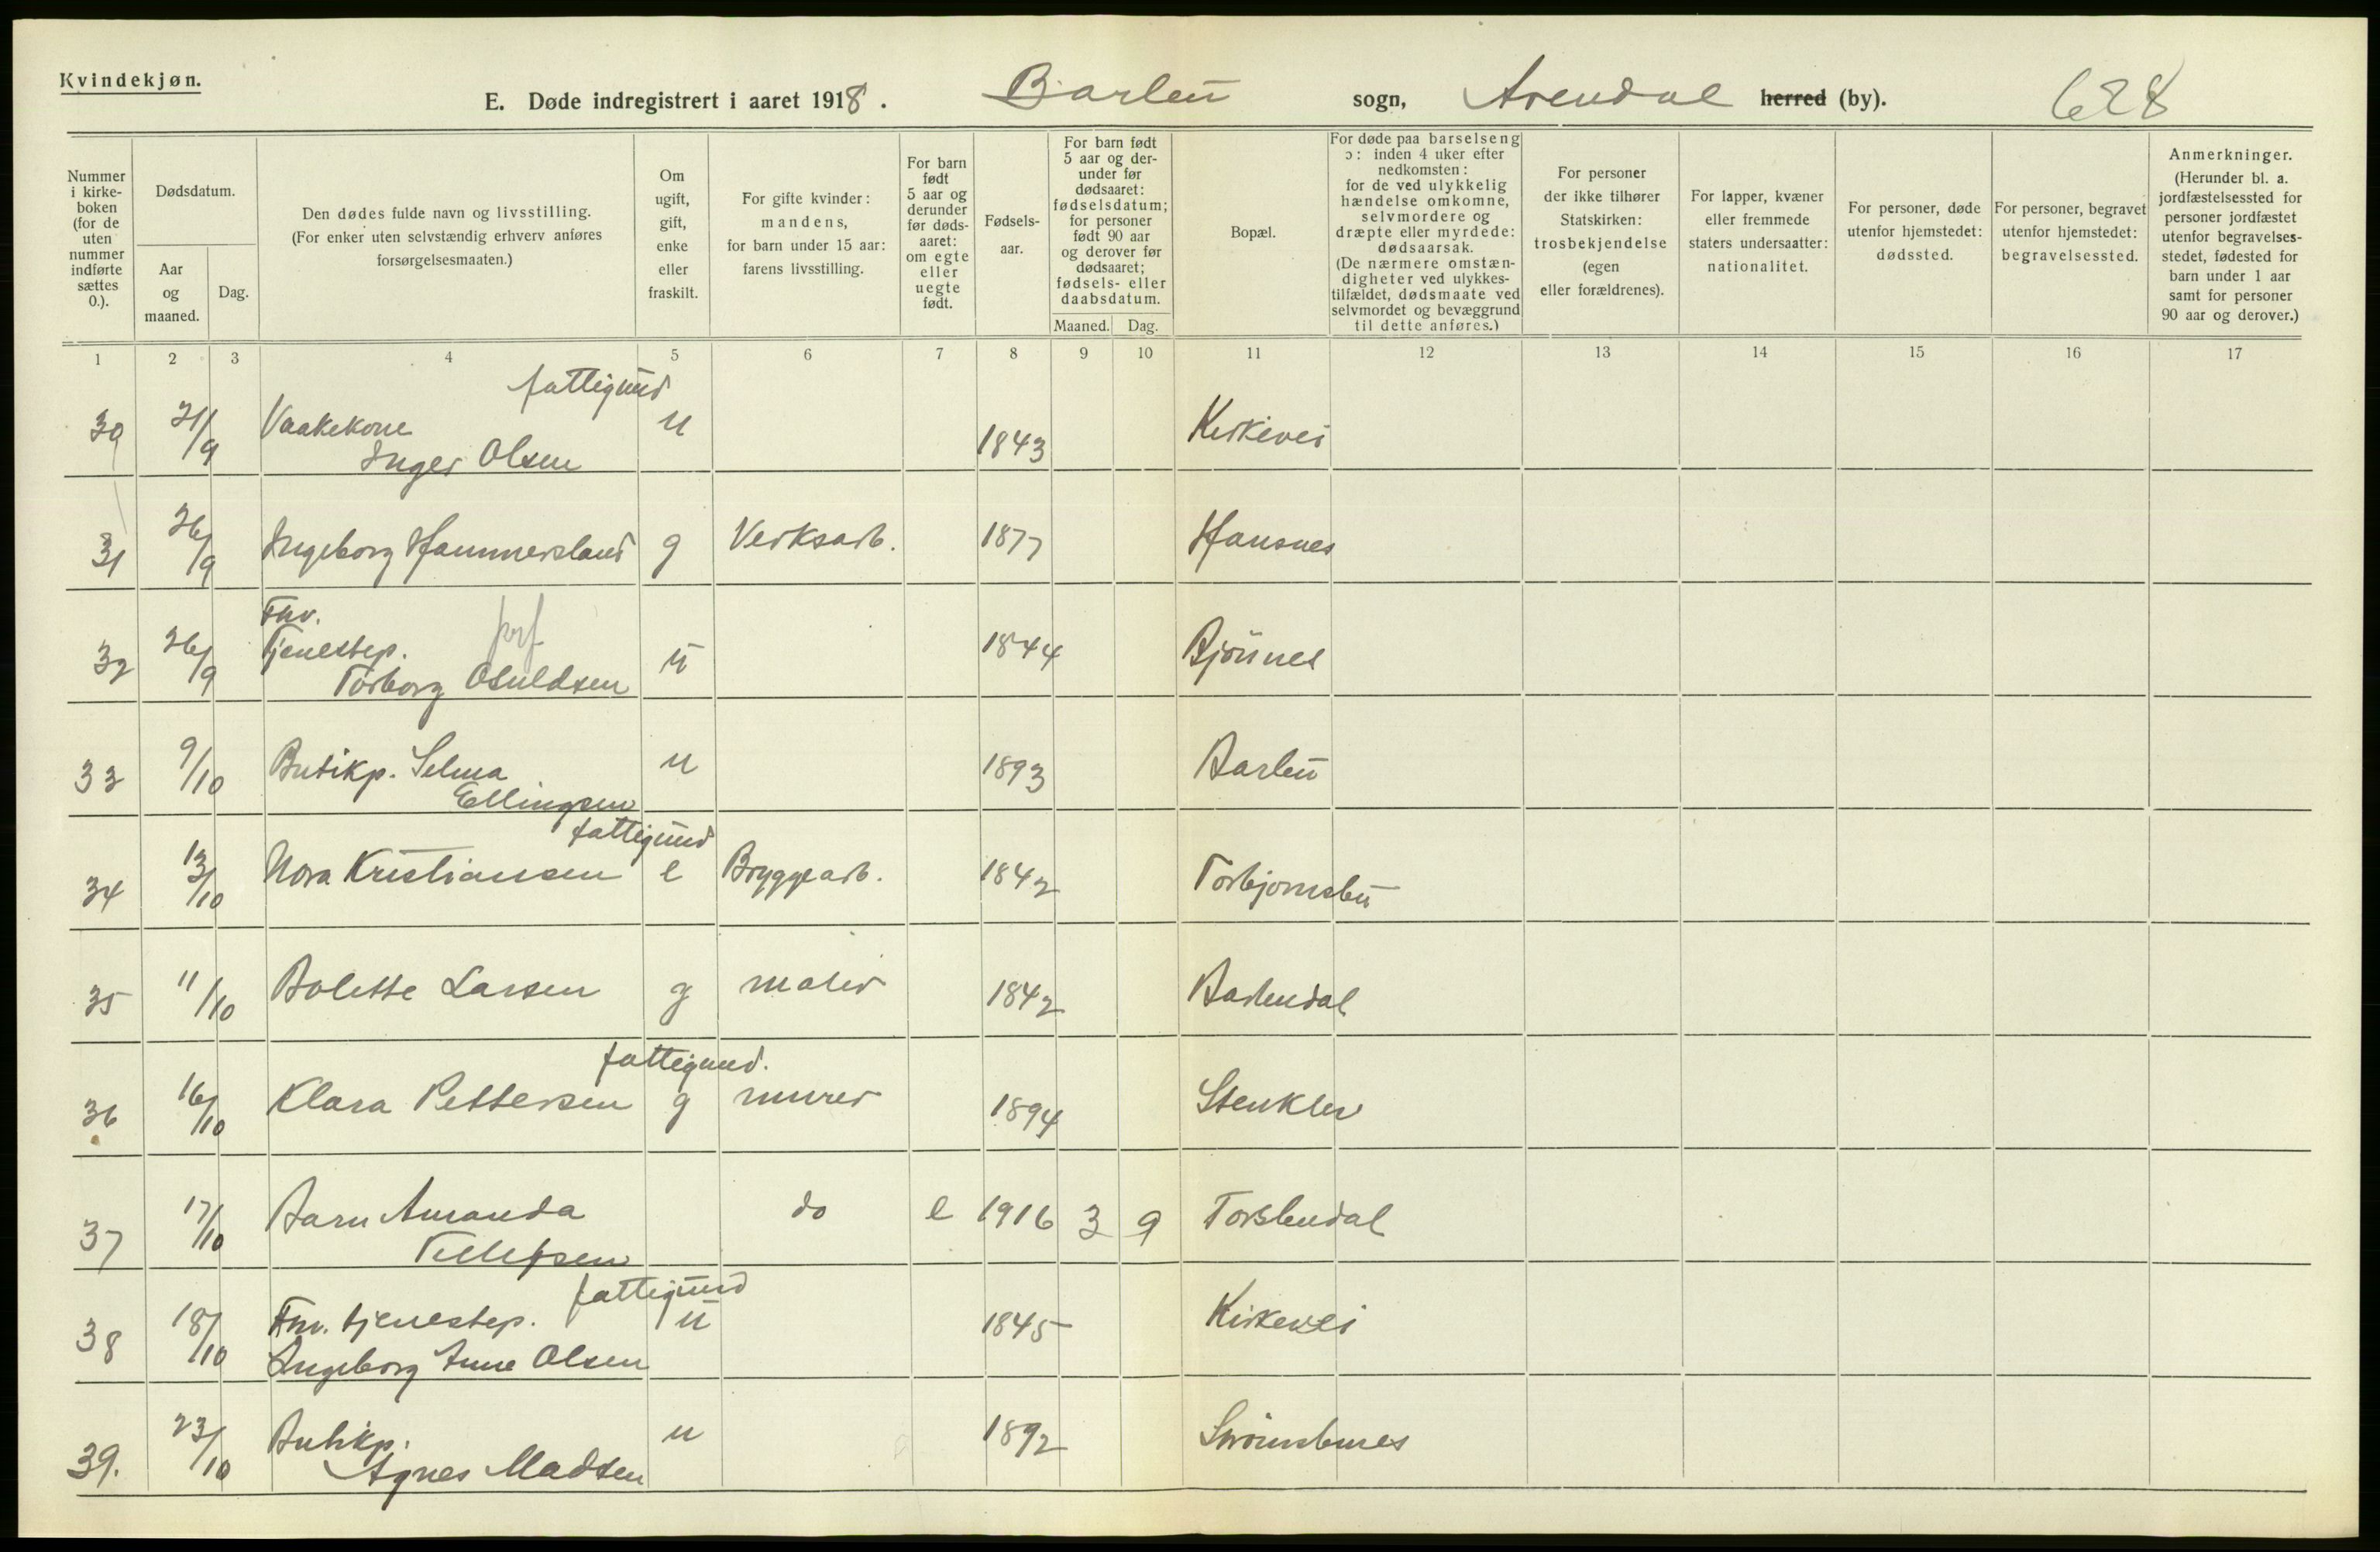 Kvindekjøn.
E. Døde indregistrert i aaret 1918. Barbu sogn, Arendal herred (by). 628
Nummer i kirkeboken (for de uten nummer indførte sættes 0.).
Dødsdatum.
Aar og maaned.
Dag.
Den dødes fulde navn og livsstilling.
(For enker uten selvstændig erhverv anføres
forsørgelsesmaaten.)
Om ugift, gift, enke eller fraskilt.
For gifte kvinder:
mandens,
for barn under 15 aar:
farens livsstilling.
For barn født 5 aar og derunder før dødsaaret: om egte eller uegte født.
Fødselsaar.
For barn født 5 aar og derunder før dødsaaret: fødselsdatum; for personer født 90 aar og derover før dødsaaret; fødsels- eller daabsdatum.
Maaned. Dag.
Bopæl.
For døde paa barselseng ɔ: inden 4 uker efter nedkomsten: for de ved ulykkelig hændelse omkomne, selvmordere og dræpte eller myrdede: dødsaarsak. (De nærmere omstændigheter ved ulykkestilfældet, dødsmaate ved selvmordet og bevæggrund til dette anføres.)
For personer der ikke tilhører Statskirken: trosbekjendelse (egen eller forældrenes).
For lapper, kvæner eller fremmede staters undersaatter: nationalitet.
For personer, døde utenfor hjemstedet: dødssted.
For personer, begravet utenfor hjemstedet: begravelsessted.
Anmerkninger. (Herunder bl. a. jordfæstelsessted for personer jordfæstet utenfor begravelsesstedet, fødested for barn under 1 aar samt for personer 90 aar og derover.)
1 2 3 4 5 6 7 8 9 10 11 12 13 14 15 16 17
fattigund
30 21/9 Vaakekone u 1843 Kirkevei
Inger Olsen
31 26/9 Ingeborg Hammersland g Verksarb. 1877 Hansnes
Fhv.
32 26/9 Tjenestep. u 1844 Bjønnes
Torborg Osuldsen
33 9/10 Butikp. Selma u 1893 Barbu
Ellingsen
fattigund
34 13/10 Nora Kristiansen e Bryggearb. 1842 Torbjørnsbu
35 11/10 Bolette Larsen g maler 1842 Barbudal
fattigund.
36 16/10 Klara Pettersen g murer 1894 Stenklev
37 17/10 Barn Amanda do e 1916 3 9 Torsbudal
Tellefsen
fattigund
38 18/10 Fhv. tjenestep. u 1845 Kirkevei
Ingeborg Anne Olsen
39. 23/10 Butikp. u 1892 Strømsbunes
Agnes Madsen